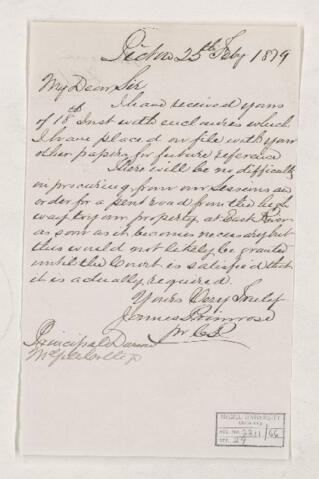 Pictou 25th Feby 1879
My Dear Sir
I have received yours
of 18th Inst with enclosures which
I have placed on file with your
other papers for future reference
There will be no difficulty
in procuring from our sessions an
order for a pent road from the high
way to our property at East River
as soon as it become necessary but
this would not likely be granted
until the Court is satisfied that
it is actually required
Yours Very Truly
James Primrose
Principal Dawson
McGill College
McGILL UNIVERSITY
ARCHIVES
ACC. NO. 2211/66
REF. 29